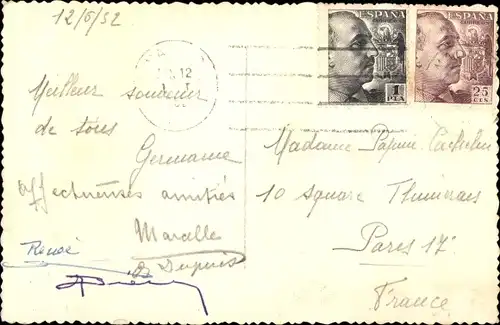 12/6/52
ESPAÑA
1
PTA
ESPAÑA
CORREOS
25
CTS
12
Meilleur souvenir
de tous
Germaine
affectueuses amitiés
Marcelle
Dupuis
René
Madame Papin
10 Square Thimerais
Paris 17e
France